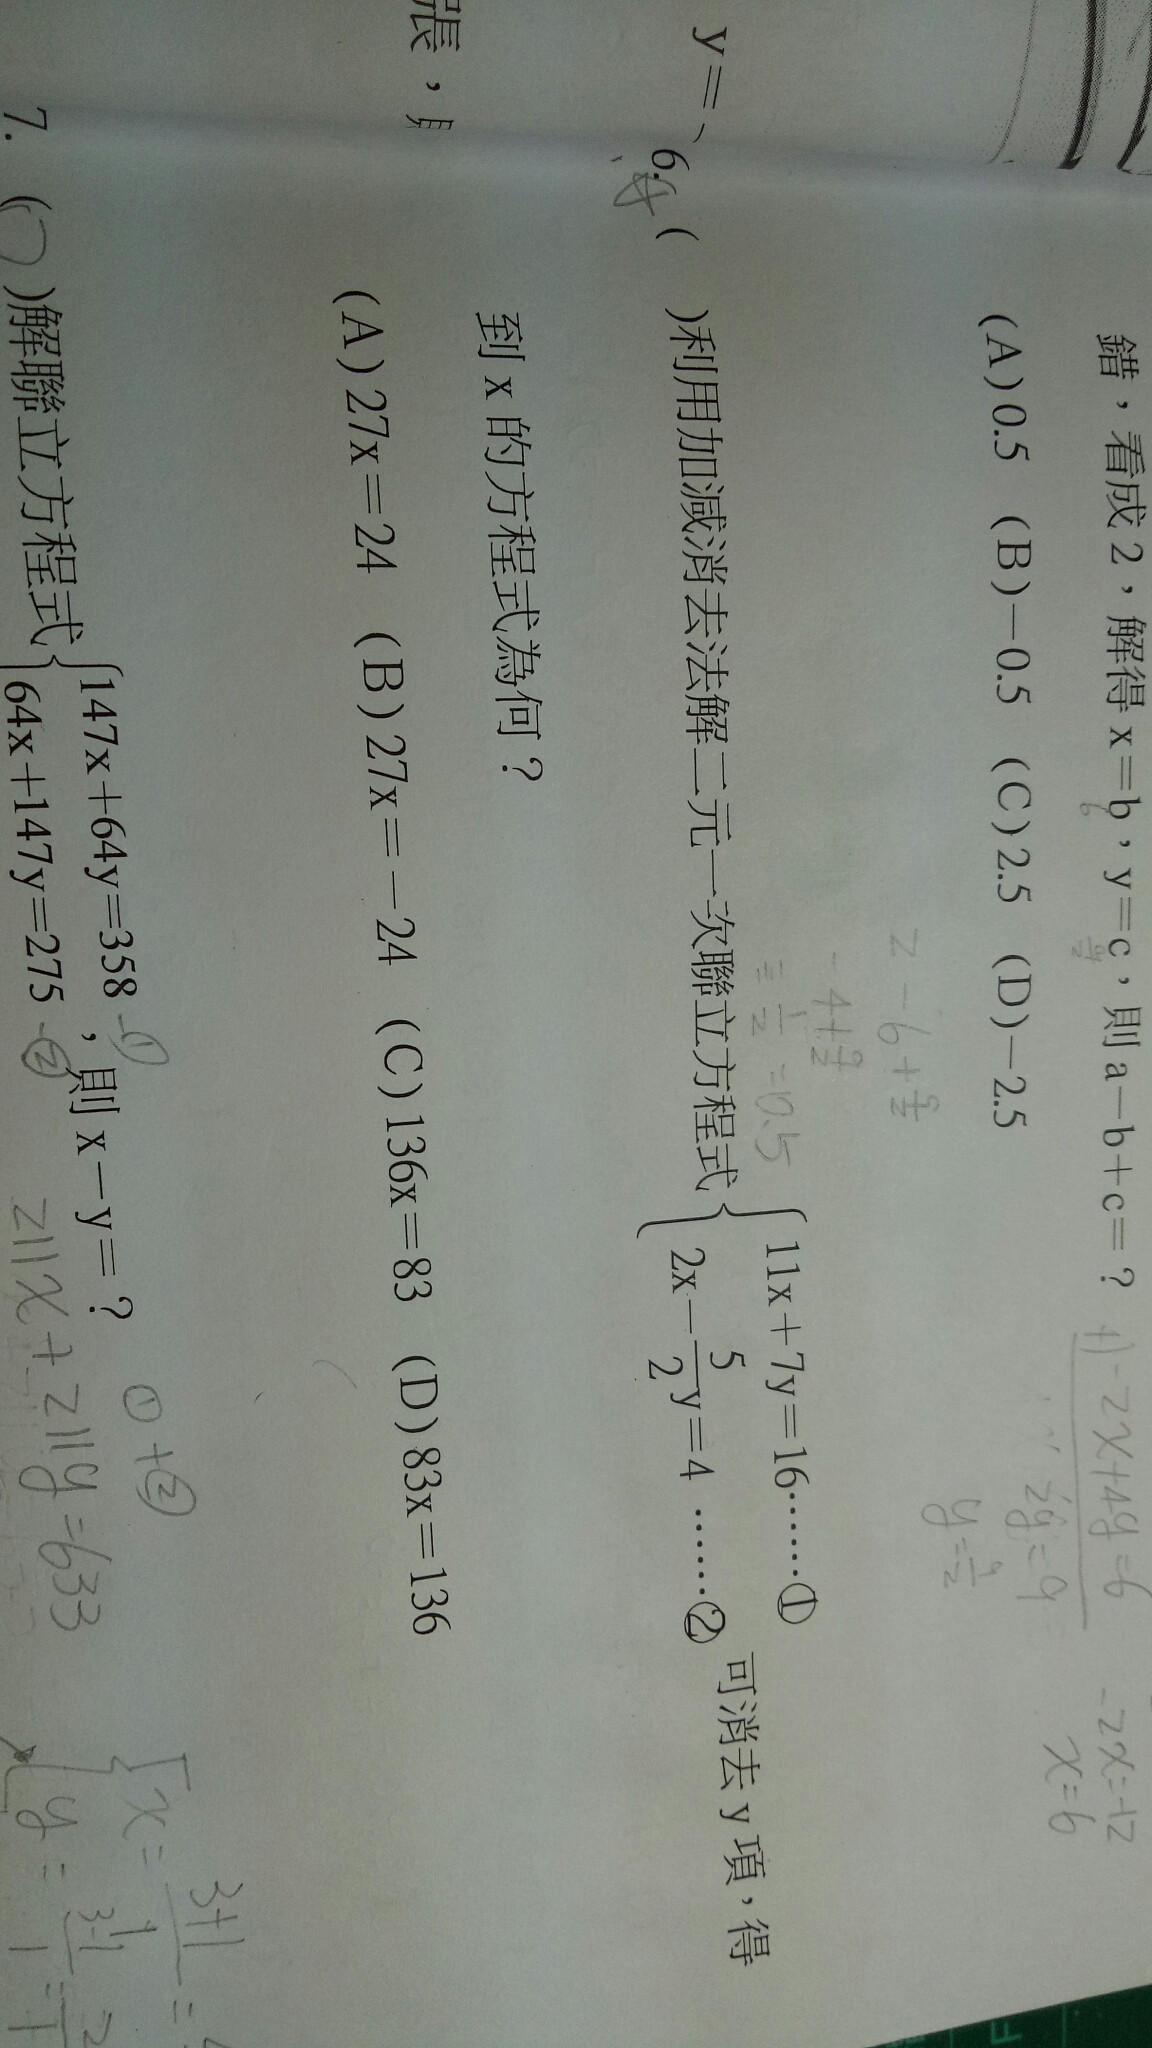 錯，看成2，解得x=b，y=c，則a-b+c=？
(A)0.5 (B)-0.5 (C)2.5 (D)-2.5
+)-2x+4y=6
2y=9
y=9/2
-2x=-12
x=6
2-6+9/2
-4+9/2
=1/2=0.5
y=
6.( )利用加減消去法解二元一次聯立方程式{11x+7y=16……①
2x-5/2y=4……②
可消去y項，得
到x的方程式為何？
張，
(A)27x=24 (B)27x=-24 (C)136x=83 (D)83x=136
7.( )解聯立方程式{147x+64y=358 -①
64x+147y=275 -②
，則x-y=？
①+②
211x+211y=633
{x=3+1/
y=3-1/